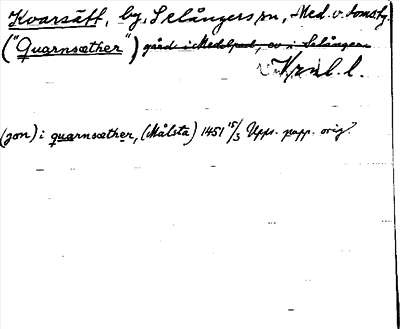 Kvarsätt, by, Selångers sn, Med. v. domsg.
("Quarnsæther") gård i Medelpad, ev. i Selånger
Krnl. l.
(jon) i quarnsæther, (Målsta) 1451 15/3 Upps. papp. orig.